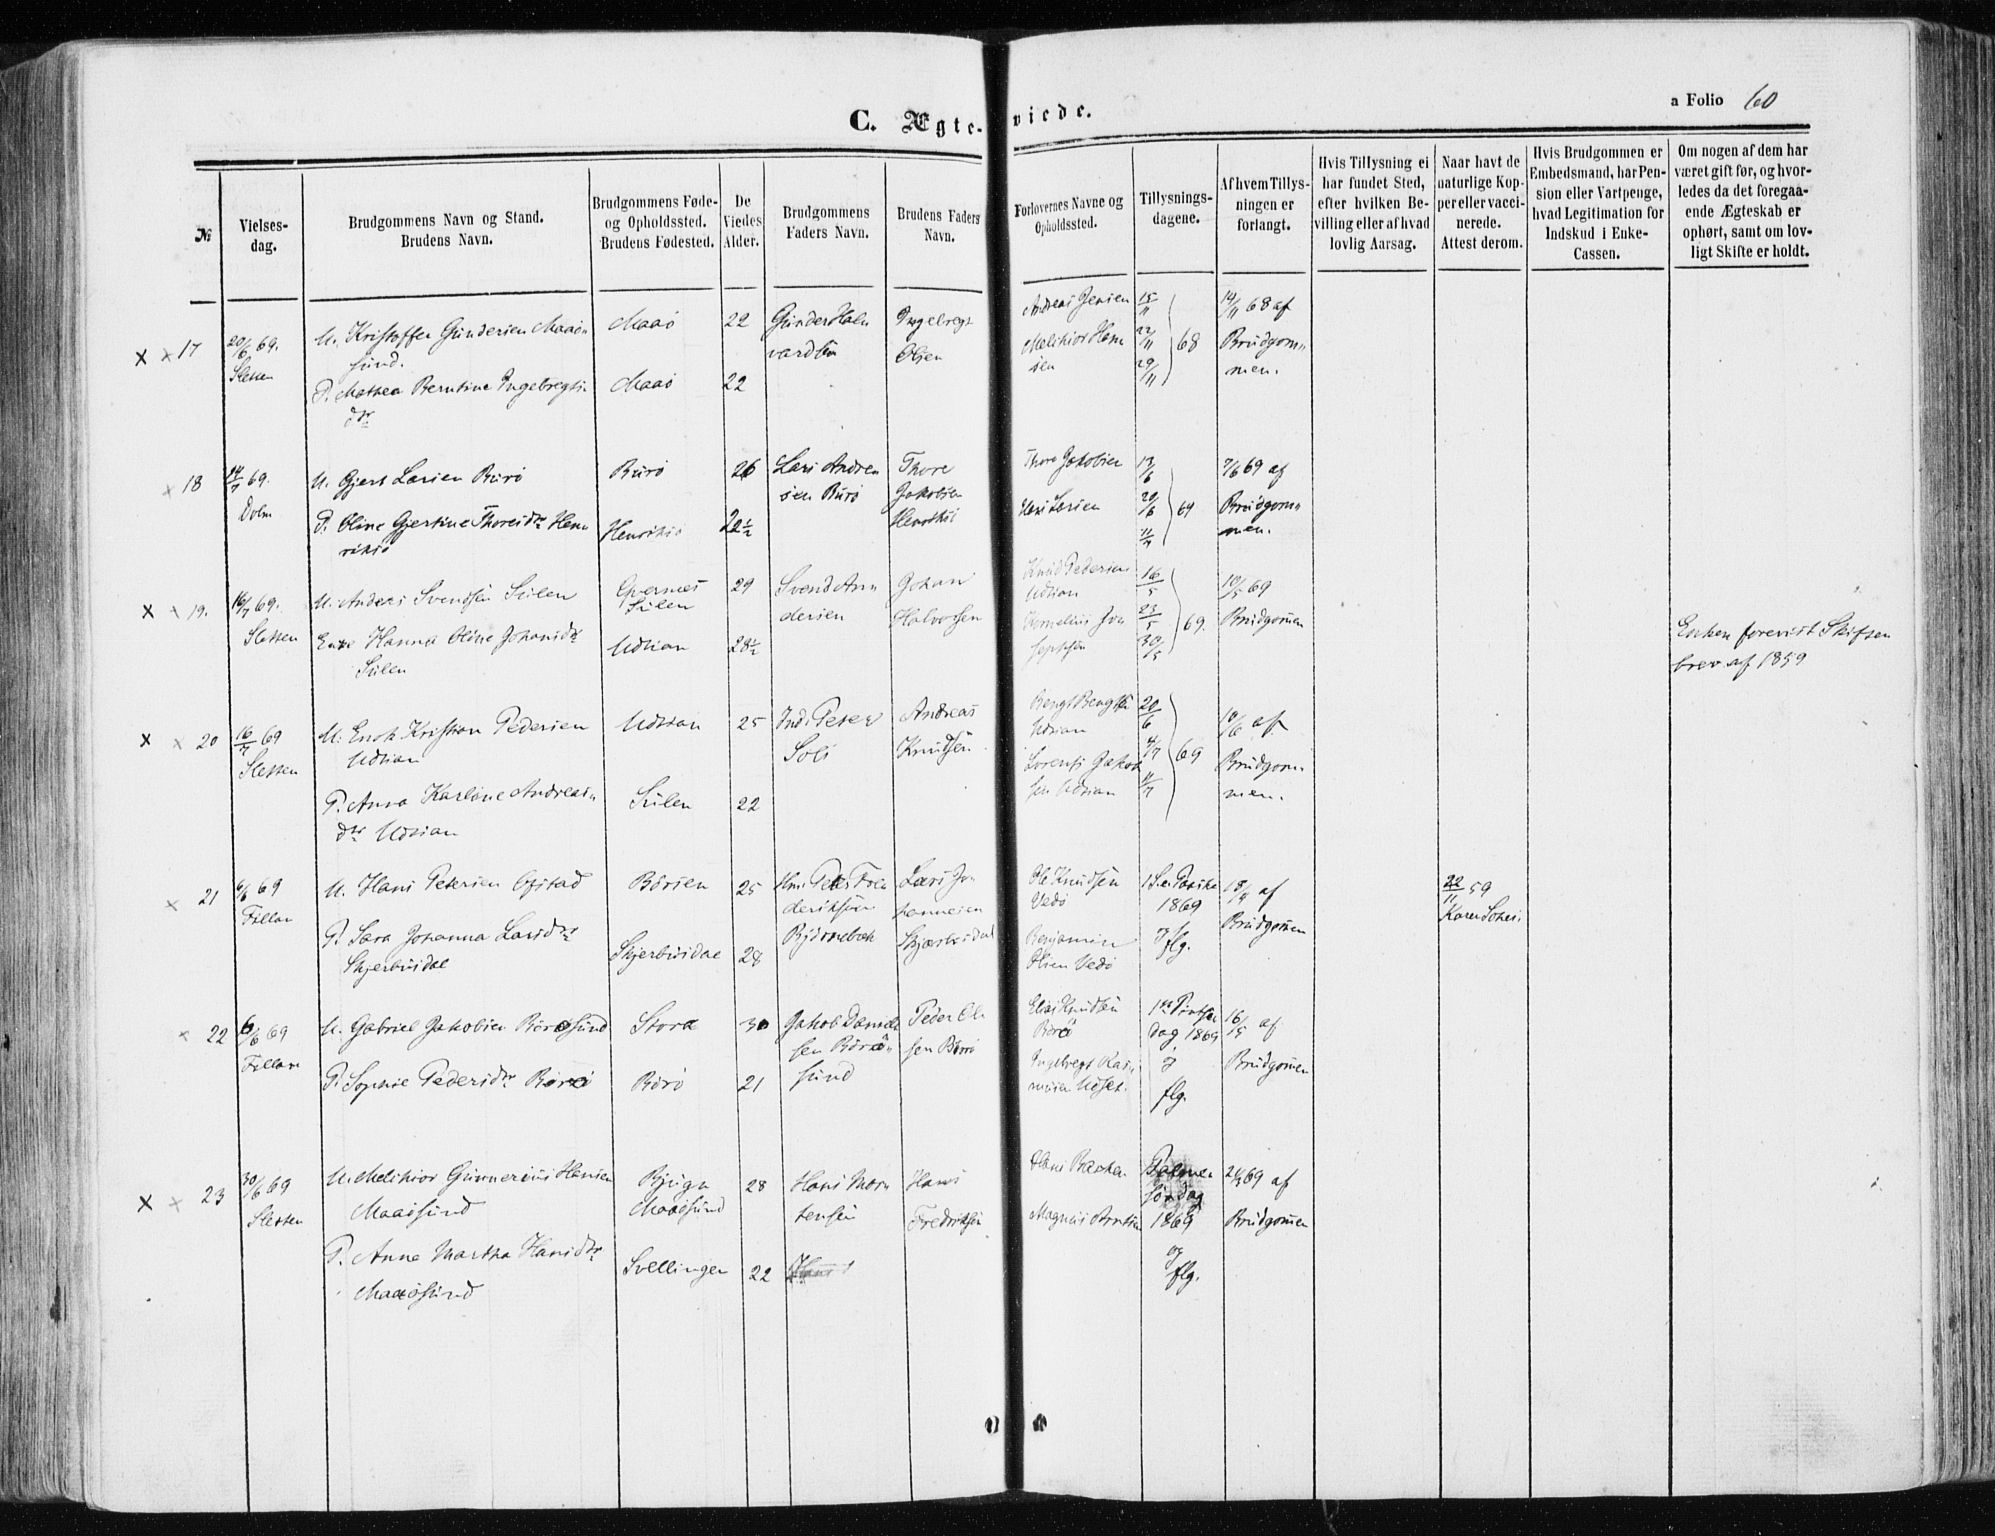 a Folio 60
C. Ægteviede.
№
Vielses-
dag.
Brudgommens Navn og Stand.
Brudens Navn.
Brudgommens Føde-
og Opholdssted.
Brudens Fødested.
De
Viedes
Alder.
Brudgommens
Faders Navn.
Brudens Faders
Navn.
Forlovernes Navne og
Opholdssted.
Tillysnings-
dagene.
Af hvem Tillys-
ningen er
forlangt.
Hvis Tillysning ei
har fundet Sted,
efter hvilken Be-
villing eller af hvad
lovlig Aarsag.
Naar havt de
naturlige Kop-
per eller vacci-
nerede.
Attest derom.
Hvis Brudgommen er
Embedsmand, har Pen-
sion eller Vartpenge,
hvad Legitimation for
Indskud i Enke-
Cassen.
Om nogen af dem har
været gift før, og hvor-
ledes da det foregaa-
ende Ægteskab er
ophørt, samt om lov-
ligt Skifte er holdt.
x x 17
20/6 69.
Sletten
U. Kristoffer Gundersen Maaø
sund.
P. Mathea Berntine Ingebregts
dtr
Maaø
Maaø
22
22
Gunder Hal
vardsen
Ingebregt
Olsen
Andreas Jensen
Melchior Han
sen
15/11
22/11
29/11
68
14/11 68 af
Brudgom
men.
x 18
14/7 69.
Dolm
U. Gjert Larsen Burø
P. Oline Gjertine Thoresdtr Hen
riksø
Burø
Henriksø
26
22½
Lars Andrea
sen Burø
Thore
Jakobsen
Henriksø
Thore Jakobsen
Hans Larsen
13/6
20/6
11/7
69
7/6 69 af
Brudgom
men.
x x 19.
16/7 69.
Sletten
U. Anders Svendsen Sulen
Enke Hanna Oline Johansdtr
Sulen
Sulen
Udsian
29
28½
Svend An
dersen
Johan
Halvorsen
Knud Pedersen
Udsian
Kornelius Jo
sephsen
16/5
23/5
30/5
69.
10/5 69
Brudgomen
Enken forevist Skifte
brev af 1859
x x 20
16/7 69
Sletten
U. Enok Kristian Pedersen
Udsian
P. Anna Karline Andreas
dtr Udsian
Udsian
Sulen
25
22
Ind. Peter
Solø
Andreas
Knudsen
Bengt Bengtsen
Udsian
Lorents Jakob
sen Udsian
20/6
4/7
11/7
69
10/6 af
Brudgom
men.
x 21
6/6 69
Fillan
U. Hans Petersen Ofstad
P. Sara Johanna Larsdtr
Skjerbusdal
Børsen
Skjerbusdal
25
28
Hm. Peter Fre
deriksen
Bjørnebek
Lars Jo
hannesen
Skjærbusdal
Ole Knudsen
Vedø
Benjamin
Olsen Vedø
1 S. e. Paaske
1869
&
flg.
18/4 af
Brudgomen
22/11 59
x 22
6/6 69
Fillan
U. Gabriel Jakobsen Børøsund
P. Sophie Pedersdtr Børø
Stora
Børø
30
21
Jakob Daniel
sen Børø
sund
Peder Ol
sen Børø
Elias Knudsen
Børø
Ingebregt Ras
musen Udset.
1ste Pintse
dag 1869
&
flg.
16/5 af
Brudgomen
x x 23
30/6 69
Sletten
U. Melchior Gunnerius Hansen
Maaøsund
P. Anne Martha Hansdtr
Maaøsund
Bjugn
Maaøsund
Svellingen
28
22
Hans Mor
tensen
Hans
Fredriksen
Hans Backen
Magnus Arntsen
Palme
søndag
1869
og
flg.
69 af
Brudgomen